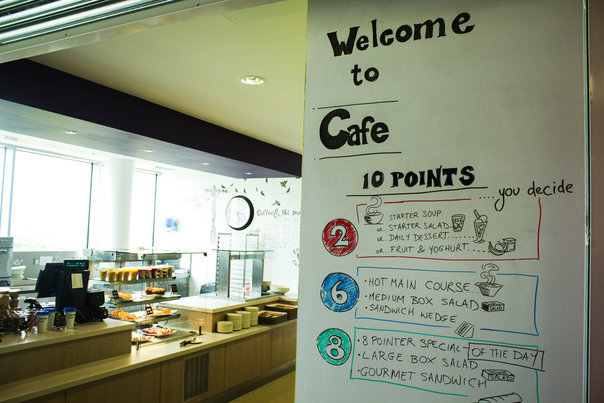 Welcome
to
Cafe
10 POINTS
....you decide
2
STARTER SOUP
or.. STARTER SALAD
or.. DAILY DESSERT
or.. FRUIT & YOGHURT
6
• HOT MAIN COURSE..
• MEDIUM BOX SALAD
• SANDWICH WEDGE
8
• 8 POINTER SPECIAL - OF THE DAY
• LARGE BOX SALAD
• GOURMET SANDWICH
Coffee & Hot